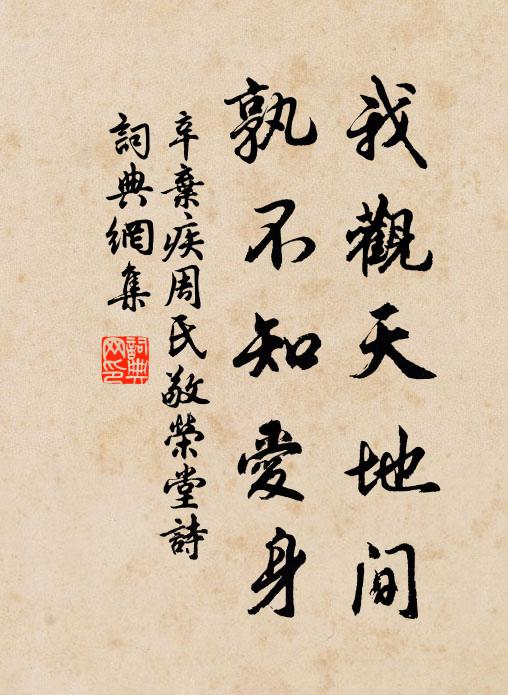 我觀天地间
孰不知愛身
辛棄疾周氏敬榮堂詩
詞典網集
詞典网印